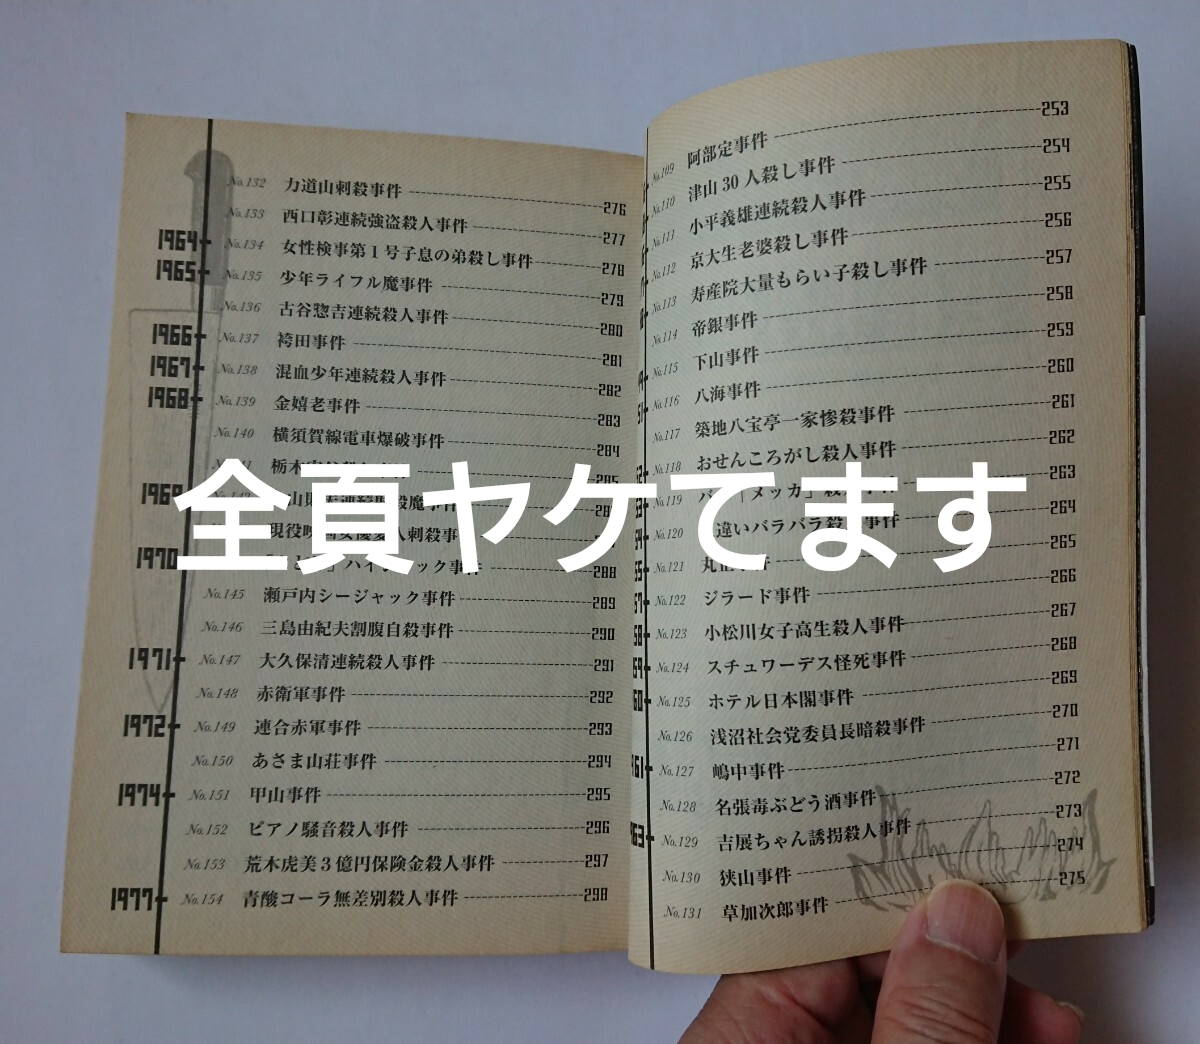 全頁ヤケてます
No.109 阿部定事件 253
No.110 津山30人殺し事件 254
No.111 小平義雄連続殺人事件 255
No.112 京大生老婆殺し事件 256
No.113 寿産院大量もらい子殺し事件 257
No.114 帝銀事件 258
No.115 下山事件 259
No.116 八海事件 260
No.117 築地八宝亭一家惨殺事件 261
No.118 おせんころがし殺人事件 262
No.119 メッカ」 263
No.120 違いバラバラ殺 事件 264
No.121 丸正事件 265
No.122 ジラード事件 266
No.123 小松川女子高生殺人事件 267
No.124 スチュワーデス怪死事件 268
No.125 ホテル日本閣事件 269
No.126 浅沼社会党委員長暗殺事件 270
No.127 嶋中事件 271
No.128 名張毒ぶどう酒事件 272
No.129 吉展ちゃん誘拐殺人事件 273
No.130 狭山事件 274
No.131 草加次郎事件 275
No.132 力道山刺殺事件 276
No.133 西口彰連続強盗殺人事件 277
1964 No.134 女性検事第1号子息の弟殺し事件 278
1965 No.135 少年ライフル魔事件 279
No.136 古谷惣吉連続殺人事件 280
1966 No.137 袴田事件 281
1967 No.138 混血少年連続殺人事件 282
1968 No.139 金嬉老事件 283
No.140 横須賀線電車爆破事件 284
栃木 285
1969 山 連続 殺魔事件
現役映 人刺殺事
1970 」ハイ ック事件 288
No.145 瀬戸内シージャック事件 289
No.146 三島由紀夫割腹自殺事件 290
1971 No.147 大久保清連続殺人事件 291
No.148 赤衛軍事件 292
1972 No.149 連合赤軍事件 293
No.150 あさま山荘事件 294
1974 No.151 甲山事件 295
No.152 ピアノ騒音殺人事件 296
No.153 荒木虎美3億円保険金殺人事件 297
1977 No.154 青酸コーラ無差別殺人事件 298